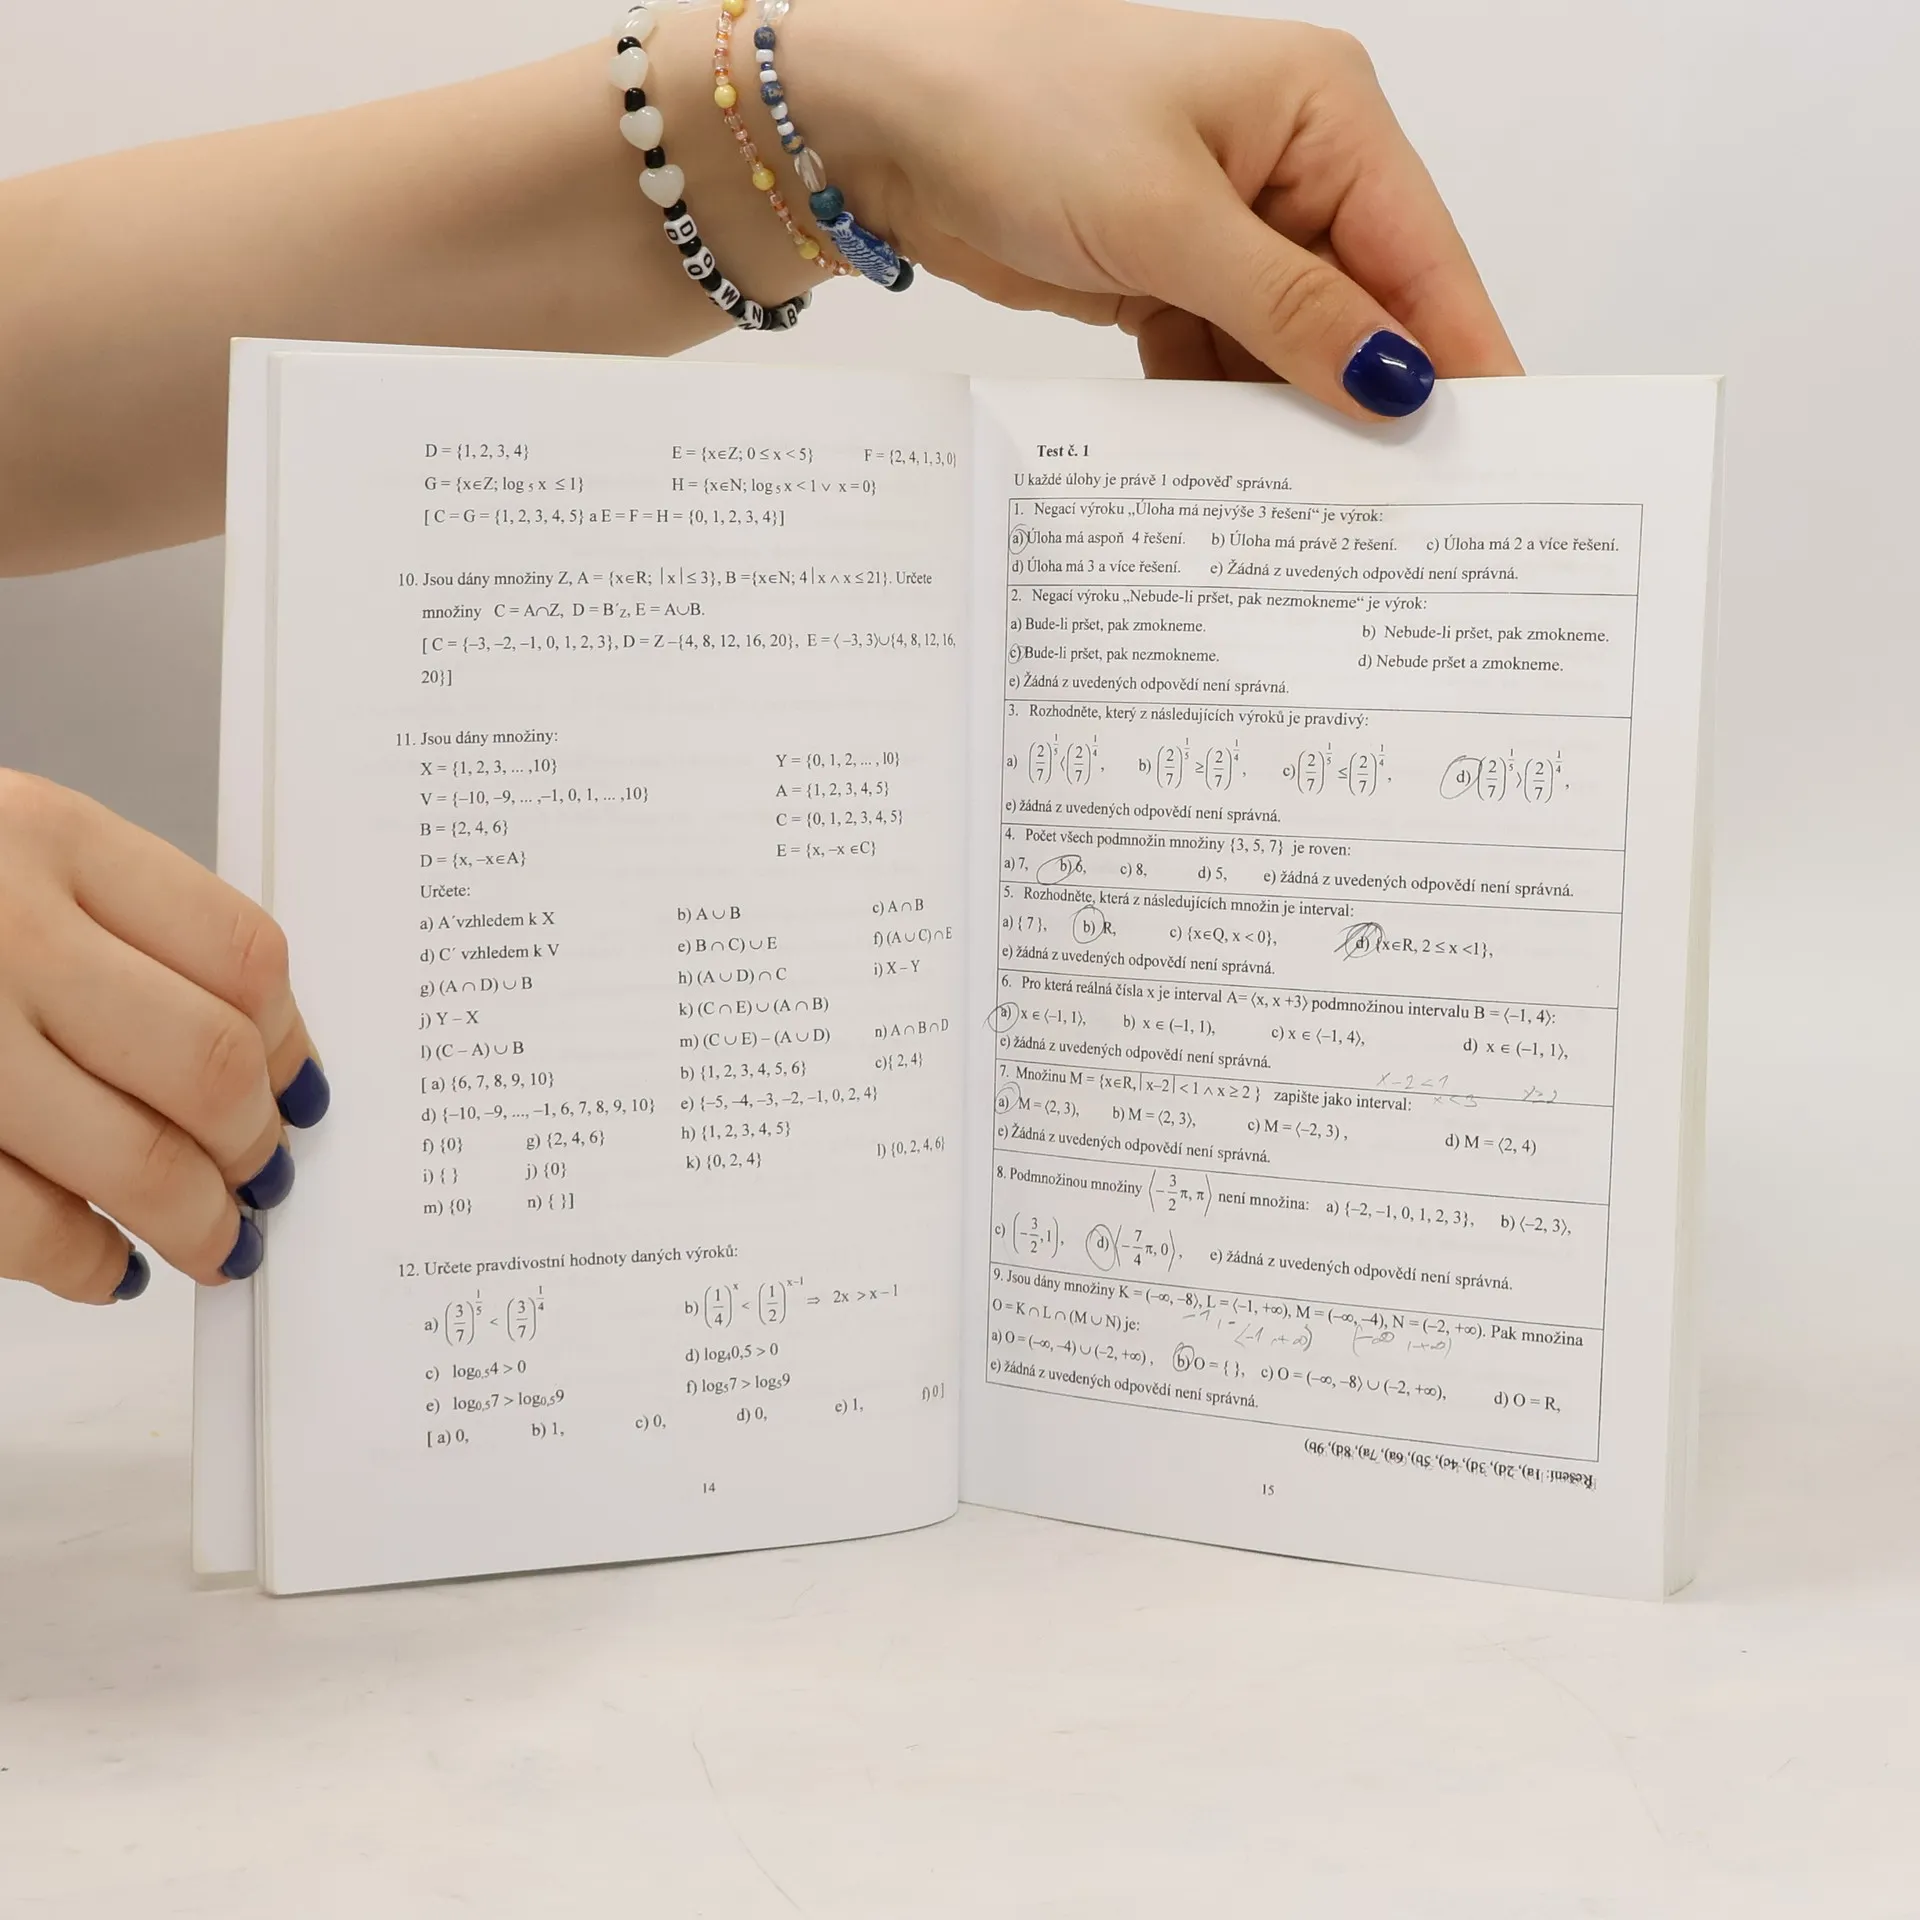 D = {1, 2, 3, 4} E = {x∈Z; 0 ≤ x < 5} F = {2, 4, 1, 3, 0}
G = {x∈Z; log 5 x ≤ 1} H = {x∈N; log 5 x < 1 ∨ x = 0}
[ C = G = {1, 2, 3, 4, 5} a E = F = H = {0, 1, 2, 3, 4}]
10. Jsou dány množiny Z, A = {x∈R; |x| ≤ 3}, B = {x∈N; 4 | x ∧ x ≤ 21}. Určete
množiny C = A∩Z, D = B´Z, E = A∪B.
[ C = {–3, –2, –1, 0, 1, 2, 3}, D = Z –{4, 8, 12, 16, 20}, E = ⟨ –3, 3⟩∪{4, 8, 12, 16,
20}]
11. Jsou dány množiny:
X = {1, 2, 3, ... ,10} Y = {0, 1, 2, ... , 10}
V = {–10, –9, ... ,–1, 0, 1, ... ,10} A = {1, 2, 3, 4, 5}
B = {2, 4, 6} C = {0, 1, 2, 3, 4, 5}
D = {x, –x∈A} E = {x, –x ∈C}
Určete:
a) A´vzhledem k X b) A ∪ B c) A ∩ B
d) C´ vzhledem k V e) B ∩ C) ∪ E f) (A ∪ C) ∩ E
g) (A ∩ D) ∪ B h) (A ∪ D) ∩ C i) X – Y
j) Y – X k) (C ∩ E) ∪ (A ∩ B)
l) (C – A) ∪ B m) (C ∪ E) – (A ∪ D) n) A ∩ B ∩ D
[ a) {6, 7, 8, 9, 10} b) {1, 2, 3, 4, 5, 6} c){ 2, 4}
d) {–10, –9, ..., –1, 6, 7, 8, 9, 10} e) {–5, –4, –3, –2, –1, 0, 2, 4}
f) {0} g) {2, 4, 6} h) {1, 2, 3, 4, 5}
i) { } j) {0} k) {0, 2, 4} l) {0, 2, 4, 6}
m) {0} n) { }]
12. Určete pravdivostní hodnoty daných výroků:
a) (3/7)^(1/5) < (3/7)^(1/4) b) (1/4)^x < (1/2)^(x–1) ⇒ 2x > x – 1
c) log0,54 > 0 d) log40,5 > 0
e) log0,57 > log0,59 f) log57 > log59
[ a) 0, b) 1, c) 0, d) 0, e) 1, f) 0 ]
14
Test č. 1
U každé úlohy je právě 1 odpověď správná.
1. Negací výroku „Úloha má nejvýše 3 řešení“ je výrok:
a) Úloha má aspoň 4 řešení. b) Úloha má právě 2 řešení. c) Úloha má 2 a více řešení.
d) Úloha má 3 a více řešení. e) Žádná z uvedených odpovědí není správná.
2. Negací výroku „Nebude-li pršet, pak nezmokneme“ je výrok:
a) Bude-li pršet, pak zmokneme. b) Nebude-li pršet, pak zmokneme.
c) Bude-li pršet, pak nezmokneme. d) Nebude pršet a zmokneme.
e) Žádná z uvedených odpovědí není správná.
3. Rozhodněte, který z následujících výroků je pravdivý:
a) (2/7)^(1/5) ⟨ (2/7)^(1/4), b) (2/7)^(1/5) ≥ (2/7)^(1/4), c) (2/7)^(1/5) ≤ (2/7)^(1/4), d) (2/7)^(1/5) ⟩ (2/7)^(1/4),
e) žádná z uvedených odpovědí není správná.
4. Počet všech podmnožin množiny {3, 5, 7} je roven:
a) 7, b) 6, c) 8, d) 5, e) žádná z uvedených odpovědí není správná.
5. Rozhodněte, která z následujících množin je interval:
a) { 7 }, b) R, c) {x∈Q, x < 0}, d) {x∈R, 2 ≤ x <1},
e) žádná z uvedených odpovědí není správná.
6. Pro která reálná čísla x je interval A= ⟨x, x +3⟩ podmnožinou intervalu B = ⟨–1, 4⟩:
a) x ∈ ⟨–1, 1⟩, b) x ∈ (–1, 1), c) x ∈ ⟨–1, 4⟩, d) x ∈ (–1, 1⟩,
e) žádná z uvedených odpovědí není správná.
x – 2 < 1
7. Množinu M = {x∈R, | x–2 | < 1 ∧ x ≥ 2 } zapište jako interval: x < 3 x ≥ 2
a) M = ⟨2, 3), b) M = ⟨2, 3⟩, c) M = ⟨–2, 3) , d) M = ⟨2, 4)
e) Žádná z uvedených odpovědí není správná.
8. Podmnožinou množiny ⟨–3/2 π, π⟩ není množina: a) {–2, –1, 0, 1, 2, 3}, b) ⟨–2, 3⟩,
c) (–3/2, 1), d) ⟨–7/4 π, 0⟩, e) žádná z uvedených odpovědí není správná.
9. Jsou dány množiny K = (–∞, –8⟩, L = ⟨–1, +∞), M = (–∞, –4), N = (–2, +∞). Pak množina
O = K ∩ L ∩ (M ∪ N) je: ⟨–1, +∞) (–∞, +∞)
a) O = (–∞, –4) ∪ (–2, +∞) , b) O = { }, c) O = (–∞, –8⟩ ∪ (–2, +∞), d) O = R,
e) žádná z uvedených odpovědí není správná.
Řešení: 1a), 2d), 3d), 4c), 5b), 6a), 7a), 8d), 9b)
15